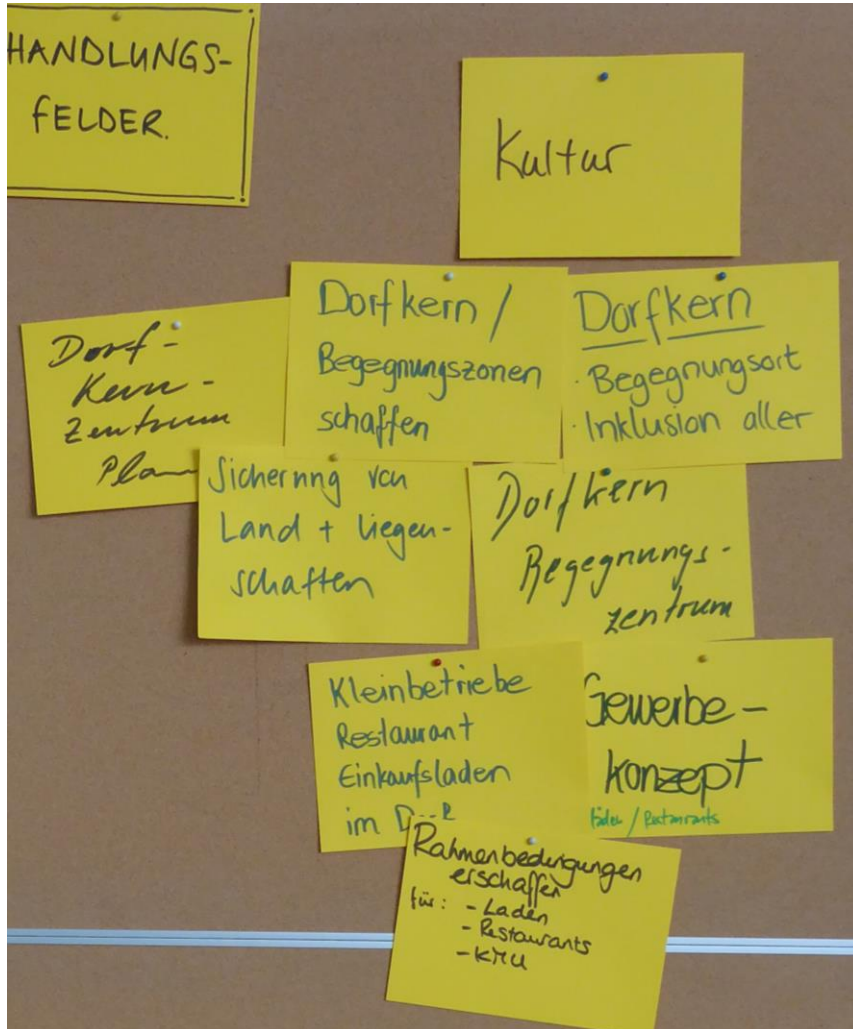 HANDLUNGS-
FELDER.
Kultur
Dorf-
Kern-
Zentrum
Plan
Dorfkern /
Begegnungszonen
schaffen
Dorfkern
· Begegnungsort
· Inklusion aller
Sicherung von
Land + Liegen-
schaften
Dorfkern
Begegnungs-
zentrum
Kleinbetriebe
Restaurant
Einkaufsladen
im
Gewerbe-
konzept
/ Restaurants
Rahmenbedingungen
erschaffen
für: - Laden
- Restaurants
- KMU